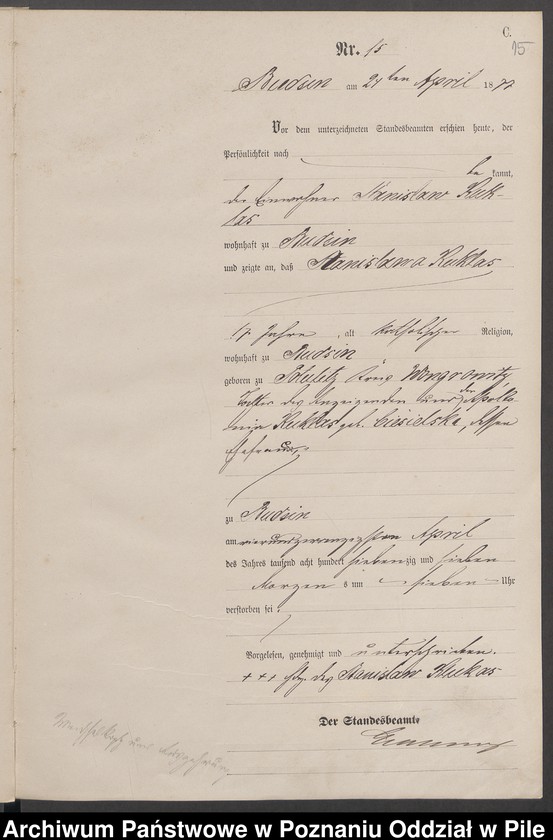 C.
15
Nr. 15
Budsin am 24ten April 1877
Vor dem unterzeichneten Standesbeamten erschien heute, der
Persönlichkeit nach
be kannt,
der Einwohner Stanislaw Kuk-
las
wohnhaft zu Budsin
und zeigte an, daß Stanislawa Kuklas
17 Jahre, alt katholischer Religion,
wohnhaft zu Budsin
geboren zu Potulitz Kreis Wongrowitz
Tochter des Anzeigenden und der Apollo
nia Kuklas geb. Ciesielska, dessen
Ehefrau,
zu Budsin
am vierundzwanzigsten April
des Jahres tausend acht hundert siebenzig und sieben
Morgens um sieben Uhr
verstorben sei
Vorgelesen, genehmigt und unterschrieben.
+++ des Stanislaw Kuklas
Der Standesbeamte
und
Archiwum Państwowe w Poznaniu Oddział w Pile